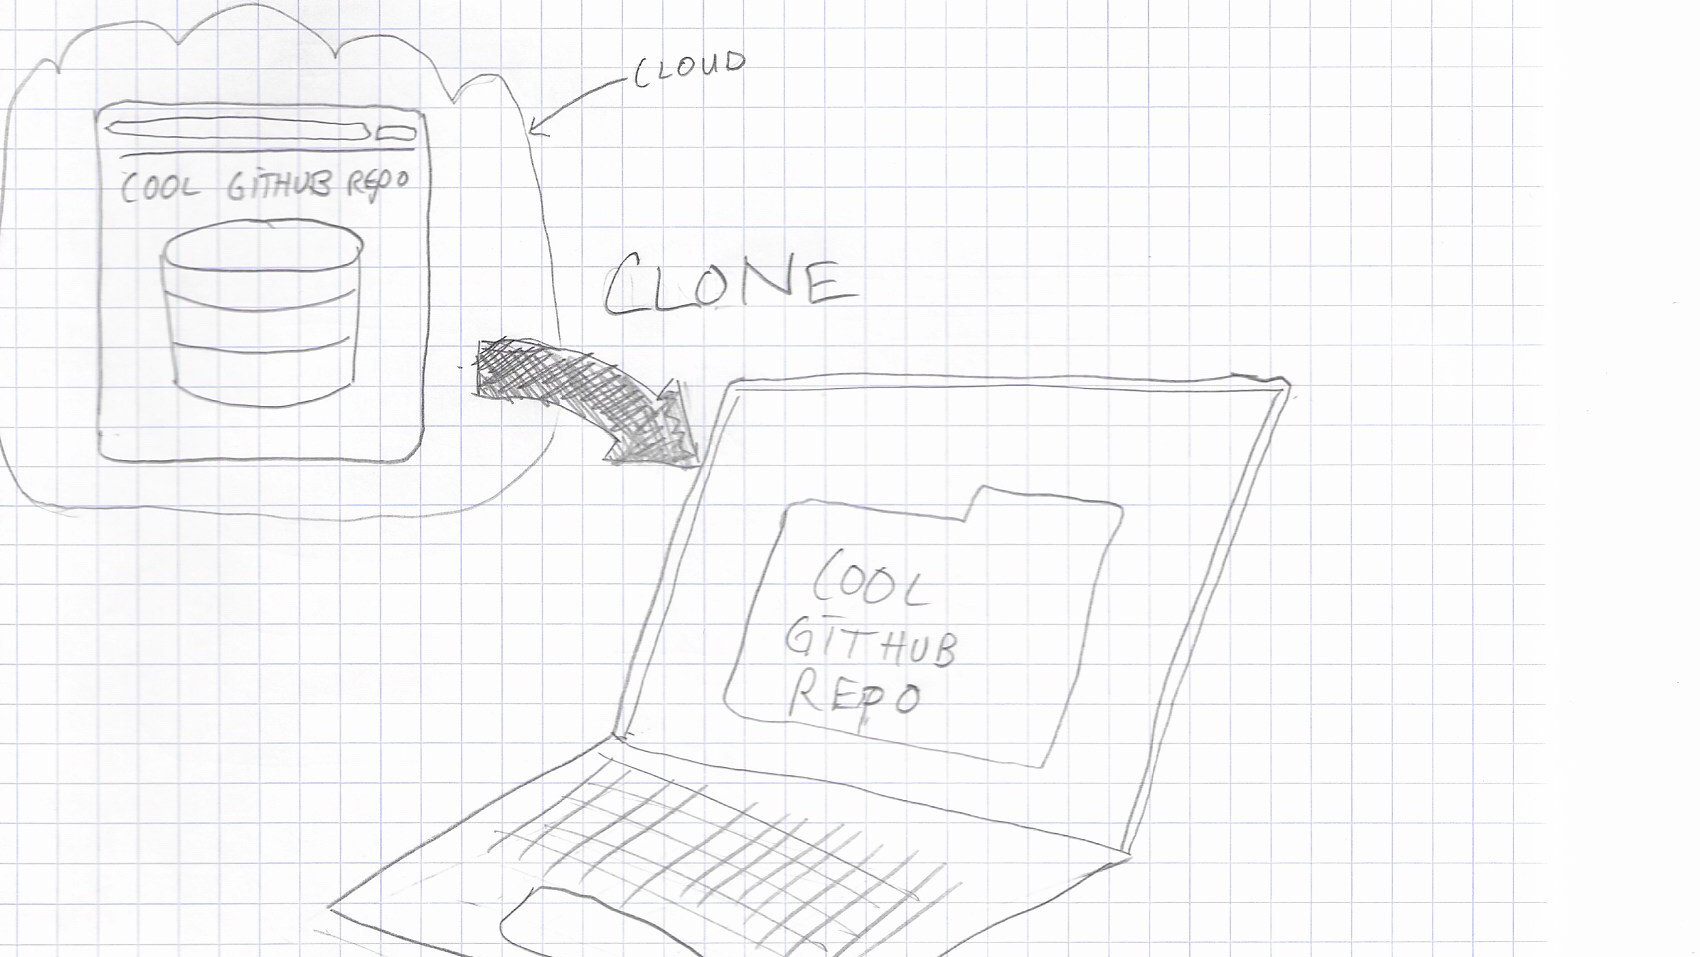 CLOUD
COOL GITHUB REPO
CLONE
COOL
GITHUB
REPO